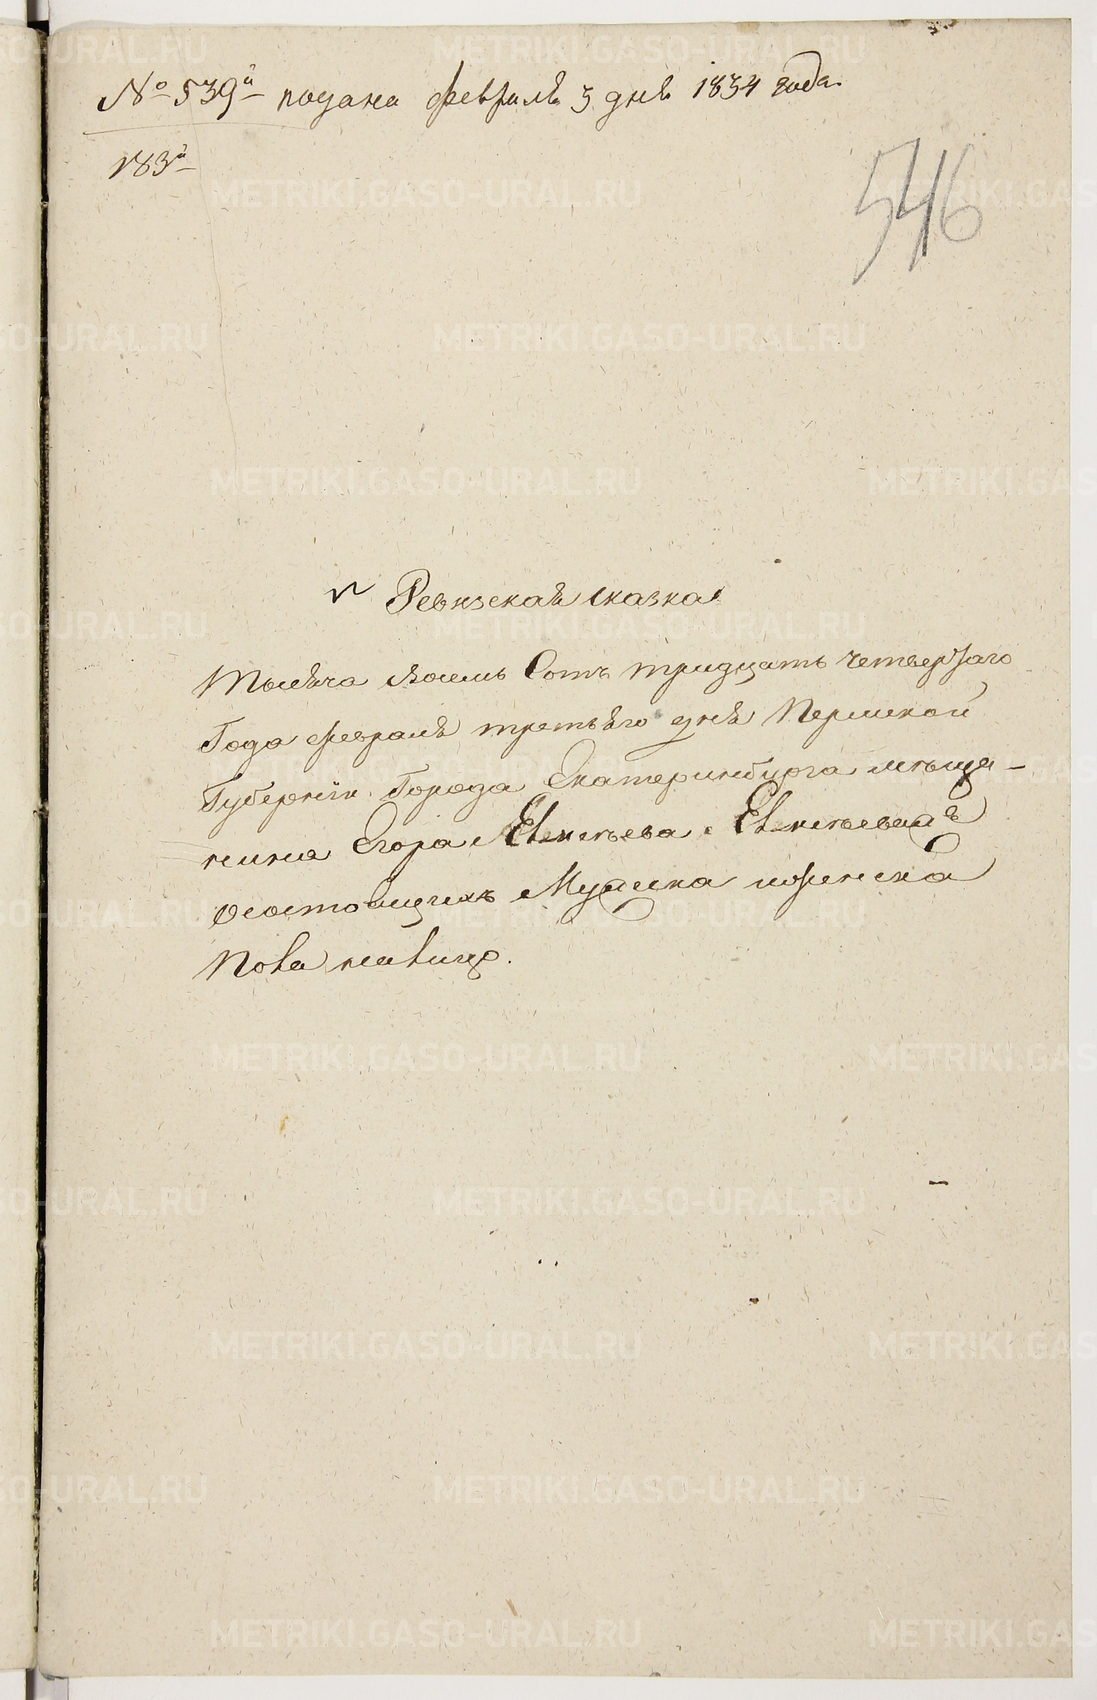 № 539й подана февраля 3 дня 1834 года.
183й
546
Ревизская сказка
Тысяча восемь Сотъ тридцать четвертаго
Года февраля третьяго дня Пермской
Губернiи Города Екатеринбурга мѣща-
нина Егора
осостоящихъ Мужеска иженска
Пола
METRIKI.GASO-URAL.RU